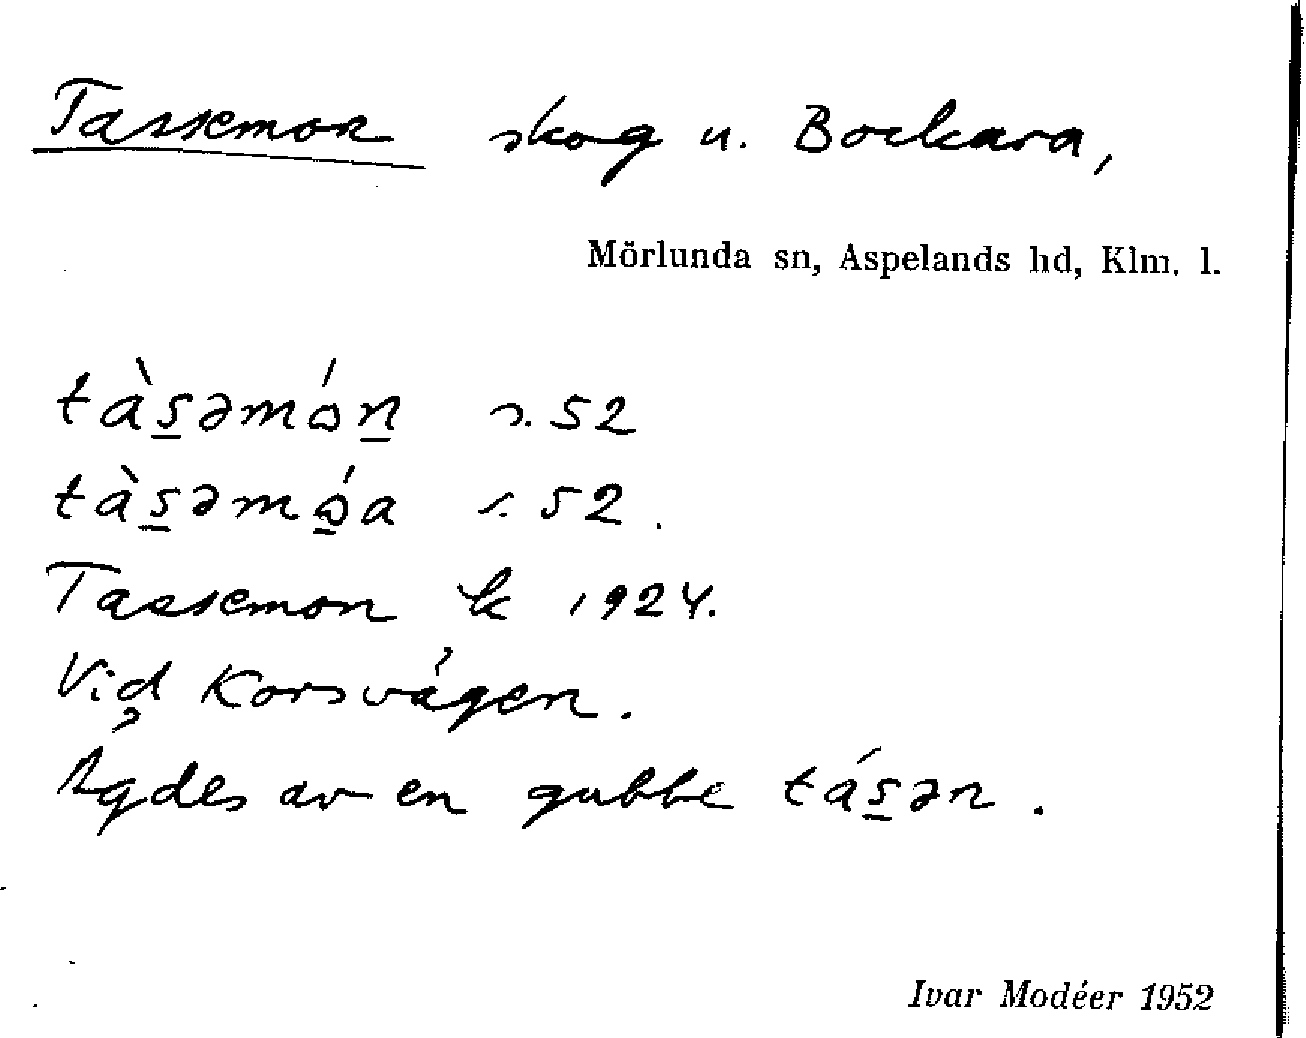 Tassemon skog u. Bockara,
Mörlunda sn, Aspelands hd, Klm. l.
tàs̱əmóṉ s. 52
tàs̱əmó̱a s. 52.
Tassemon k 1924.
Vid Korsvägen.
Ägdes av en gubbe tás̱ən.
Ivar Modéer 1952